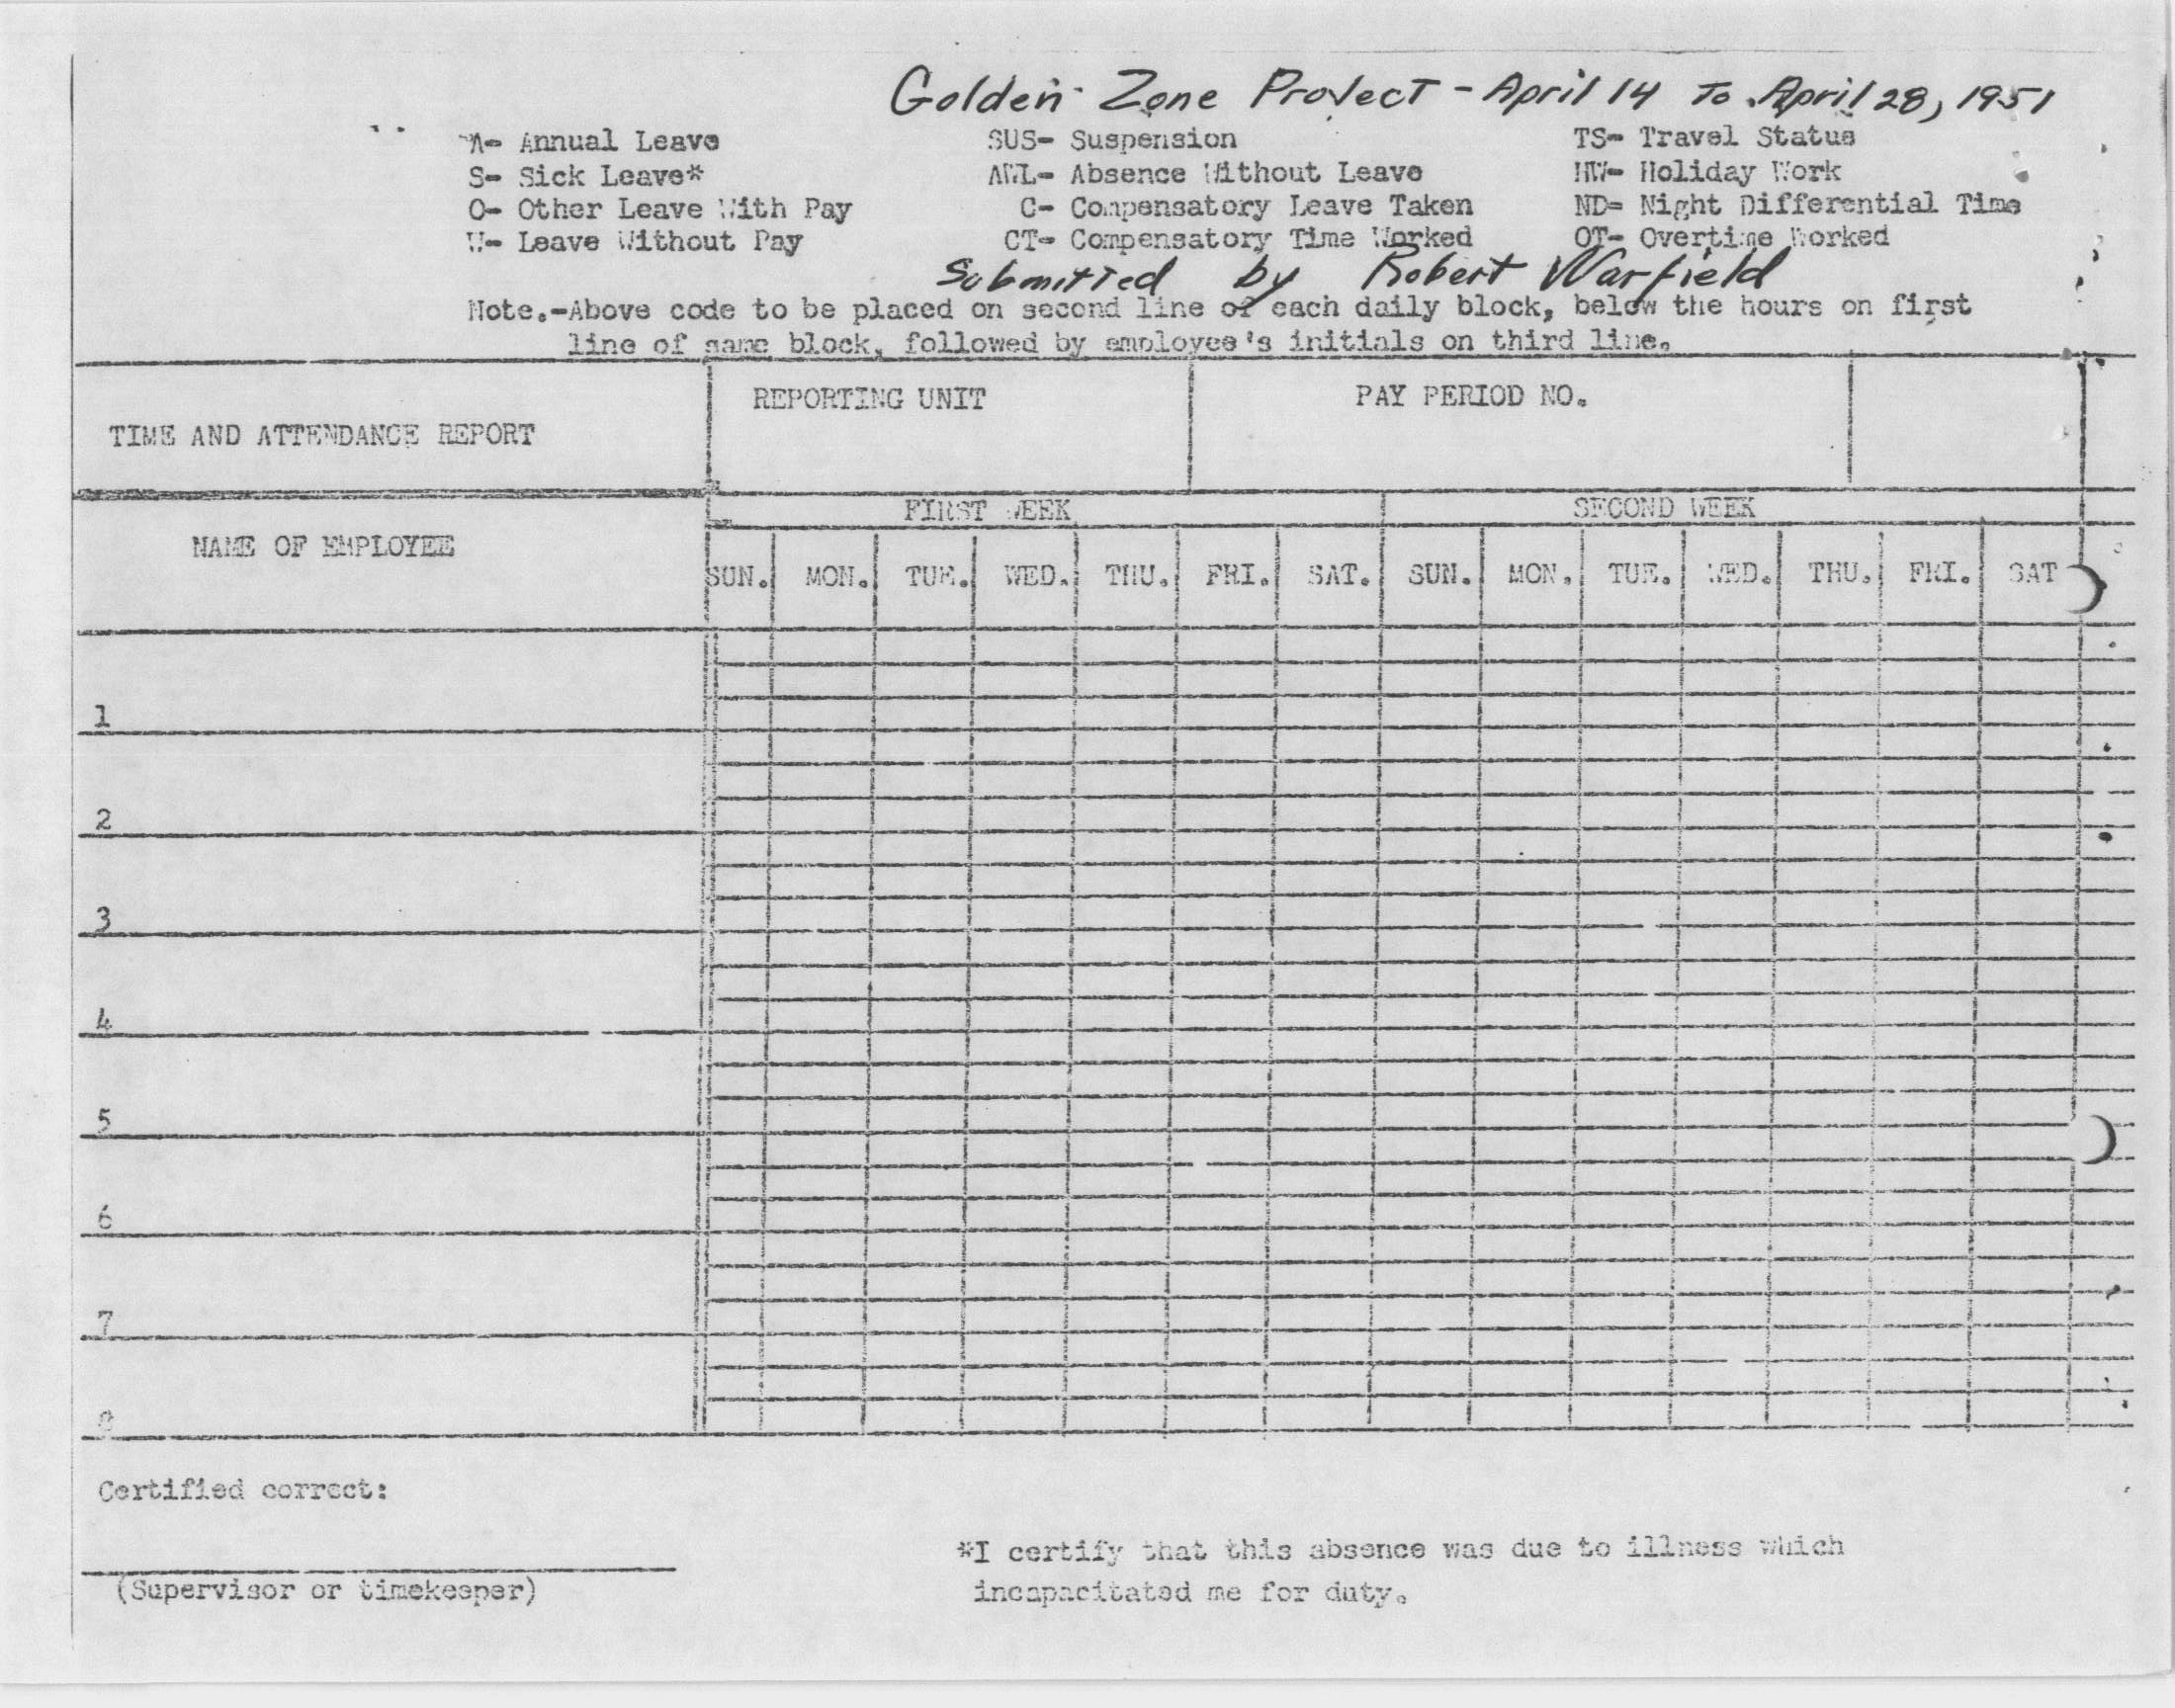 Golden Zone Project - April 14 To April 28, 1951
A- Annual Leave SUS- Suspension TS- Travel Status
S- Sick Leave* AWL- Absence Without Leave HW- Holiday Work
O- Other Leave With Pay C- Compensatory Leave Taken ND- Night Differential Time
W- Leave Without Pay CT- Compensatory Time Worked OT- Overtime Worked
Submitted by Robert Warfield
Note.-Above code to be placed on second line of each daily block, below the hours on first
line of same block, followed by employee's initials on third line.
TIME AND ATTENDANCE REPORT
REPORTING UNIT
PAY PERIOD NO.
NAME OF EMPLOYEE
FIRST WEEK SECOND WEEK
SUN. MON. TUE. WED. THU. FRI. SAT. SUN. MON. TUE. WED. THU. FRI. SAT
1
2
3
4
5
6
7
8
Certified correct:
(Supervisor or timekeeper)
*I certify that this absence was due to illness which
incapacitated me for duty.